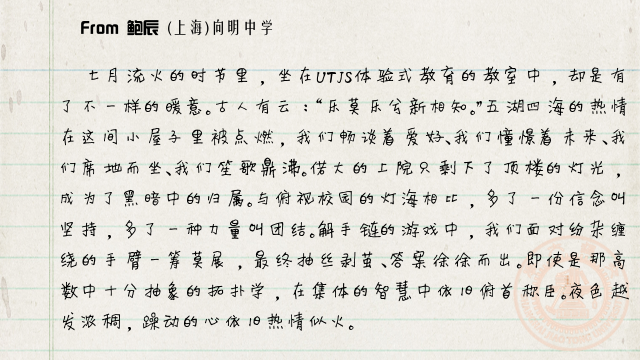 From 鲍辰 (上海)向明中学
七月流火的时节里，坐在UTJS体验式教育的教室中，却是有
了不一样的暖意。古人有云：“乐莫乐兮新相知。”五湖四海的热情
在这间小屋子里被点燃，我们畅谈着爱好、我们憧憬着未来、我
们席地而坐、我们笙歌鼎沸。偌大的上院只剩下了顶楼的灯光，
成为了黑暗中的归属。与俯视校园的灯海相比，多了一份信念叫
坚持，多了一种力量叫团结。解手链的游戏中，我们面对纷杂缠
绕的手臂一筹莫展，最终抽丝剥茧、答案徐徐而出。即使是那高
数中十分抽象的拓扑学，在集体的智慧中依旧俯首称臣。夜色越
发浓稠，躁动的心依旧热情似火。